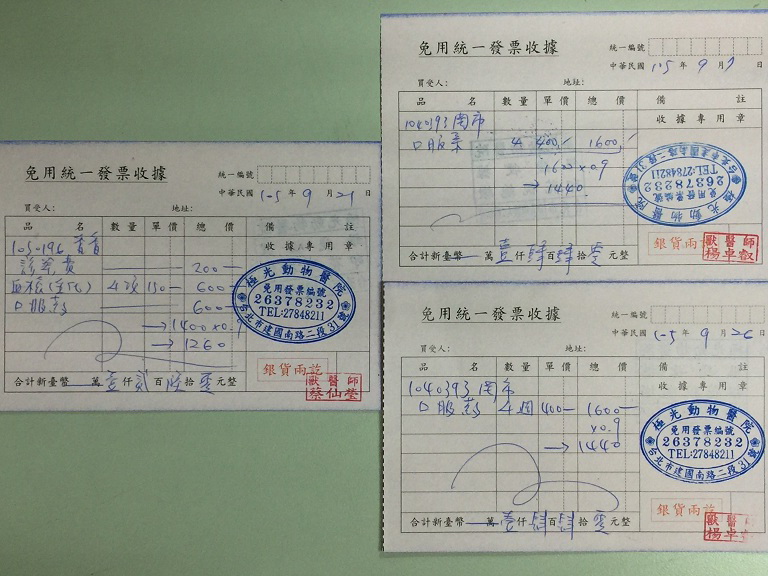 免用統一發票收據
統一編號
中華民國105年9月21日
買受人: 地址:
品名 數量 單價 總價 備註
105-196 收據專用章
診察費 200
4項 150 600
口服葯 600
→1400×0.9
→1260
極光動物醫院
免用發票編號
26378232
TEL:27848211
台北市建國南路二段31號
合計新臺幣 萬壹仟貳百陸拾零元整
銀貨兩訖
獸醫師
蔡仙瑩
免用統一發票收據
統一編號
中華民國105年9月7日
買受人: 地址:
品名 數量 單價 總價 備註
1040393 收據專用章
口服葯 4 400 1600
1600×0.9
→1440
極光動物醫院
免用發票編號
26378232
TEL:27848211
台北市建國南路二段31號
合計新臺幣 萬壹仟肆百肆拾零元整
銀貨兩訖
獸醫師
楊卓叡
免用統一發票收據
統一編號
中華民國105年9月26日
買受人: 地址:
品名 數量 單價 總價 備註
1040393 收據專用章
口服葯 4週 400 1600
×0.9
→1440
極光動物醫院
免用發票編號
26378232
TEL:27848211
台北市建國南路二段31號
合計新臺幣 萬壹仟肆百肆拾零元整
銀貨兩訖
獸醫
楊卓